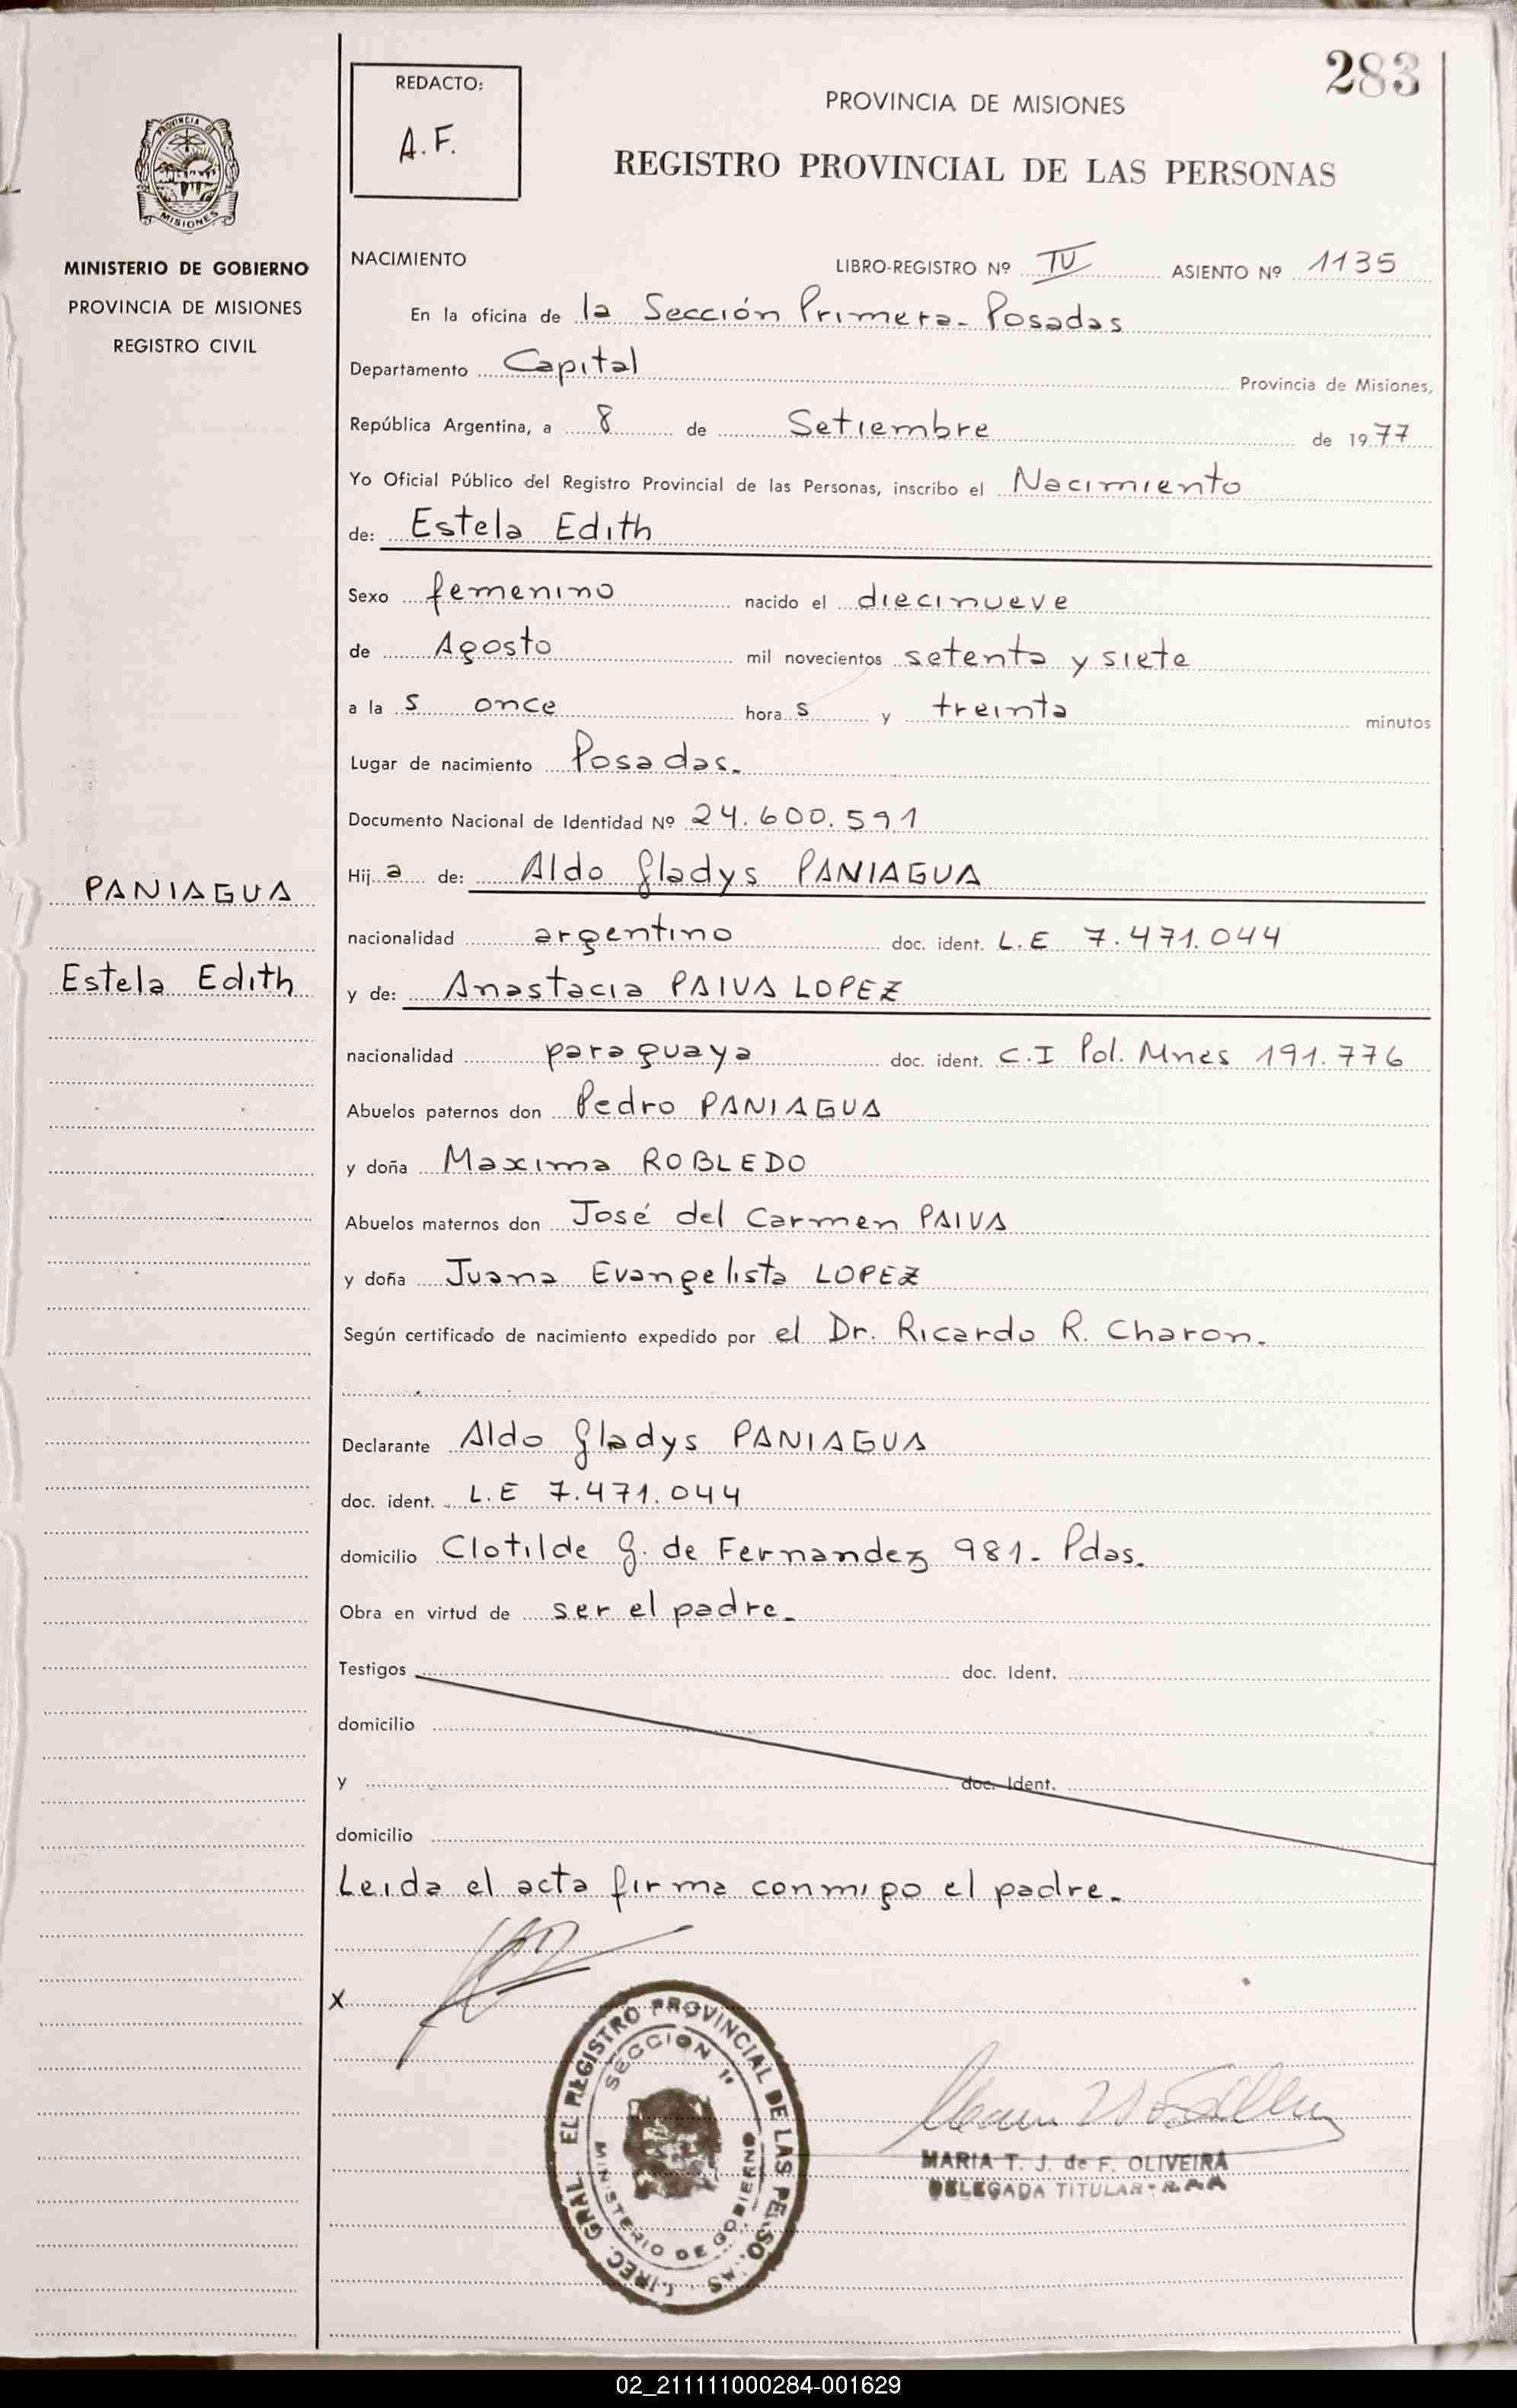 283
REDACTO:
A.F.
PROVINCIA DE MISIONES
REGISTRO PROVINCIAL DE LAS PERSONAS
PROVINCIA DE
MISIONES
MINISTERIO DE GOBIERNO
PROVINCIA DE MISIONES
REGISTRO CIVIL
NACIMIENTO LIBRO-REGISTRO Nº IV ASIENTO Nº 1135
En la oficina de la Sección Primera - Posadas
Departamento Capital Provincia de Misiones,
República Argentina, a 8 de Setiembre de 1977
Yo Oficial Público del Registro Provincial de las Personas, inscribo el Nacimiento
de: Estela Edith
Sexo femenino nacido el diecinueve
de Agosto mil novecientos setenta y siete
a la s once hora s y treinta minutos
Lugar de nacimiento Posadas.
Documento Nacional de Identidad Nº 24.600.591
PANIAGUA
Estela Edith
Hij a de: Aldo Gladys PANIAGUA
nacionalidad argentino doc. ident. L.E 7.471.044
y de: Anastacia PAIVA LOPEZ
nacionalidad paraguaya doc. ident. C.I Pol. Mnes 191.776
Abuelos paternos don Pedro PANIAGUA
y doña Maxima ROBLEDO
Abuelos maternos don José del Carmen PAIVA
y doña Juana Evangelista LOPEZ
Según certificado de nacimiento expedido por el Dr. Ricardo R. Charon.
Declarante Aldo Gladys PANIAGUA
doc. ident. L.E 7.471.044
domicilio Clotilde G. de Fernandez 981 - Pdas.
Obra en virtud de ser el padre.
Testigos doc. Ident.
domicilio
y doc. Ident.
domicilio
Leida el acta firma conmigo el padre.
X
GRAL EL REGISTRO PROVINCIAL DE LAS
SECCION 1ª
MINISTERIO DE GOBIERNO
MARIA T. J. de F. OLIVEIRA
DELEGADA TITULAR
02_211111000284-001629